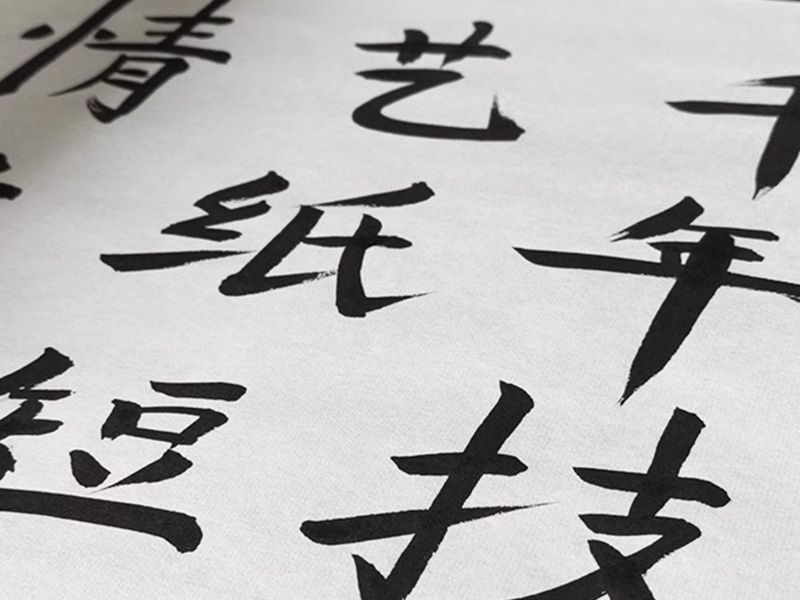 千年技
艺纸短
情